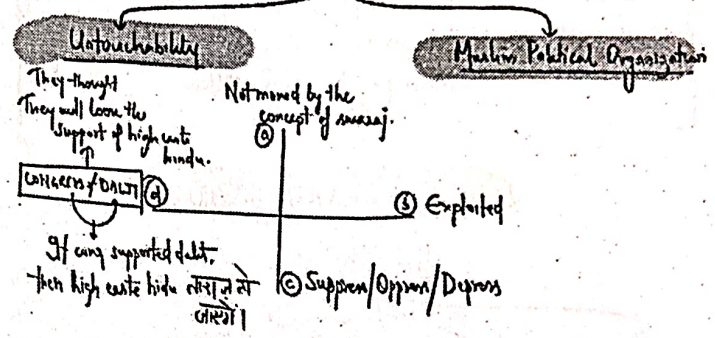 Untouchability
Muslim Political Organization
They thought
They will loose the
support of high caste
hindu.
Not moved by the
concept of swaraj.
(a)
CONGRESS / DALIT (d)
(b) Exploited
If cong supported dalit,
then high caste hidu नाराज हो
जाएंगे।
(c) Suppress/Oppress/Depress